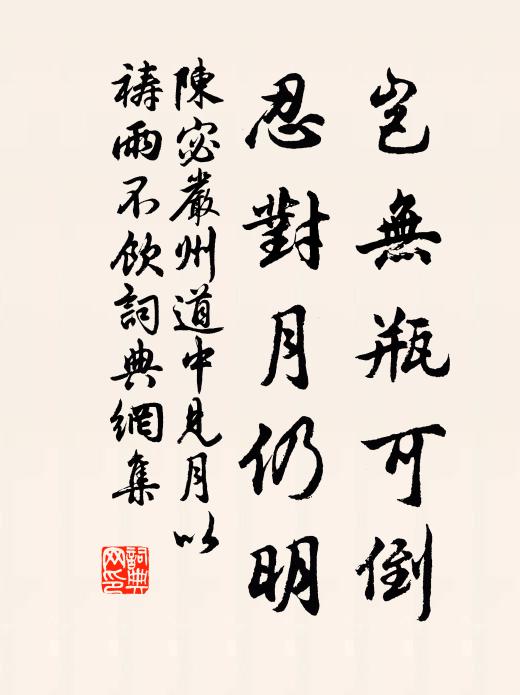 豈無瓶可倒
忍對月仍明
陳宓嚴州道中見月以
禱雨不飲詞典網集
詞典网印